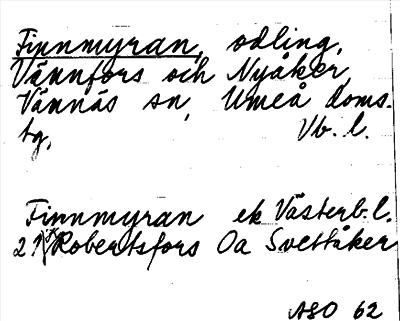 Finnmyran, odling,
Vännfors och Nyåker,
Vännäs sn, Umeå doms.
tg, Vb. l.
Finnmyran ek Västerb. l.
21 Robertsfors Oa Svettåker
ASO 62